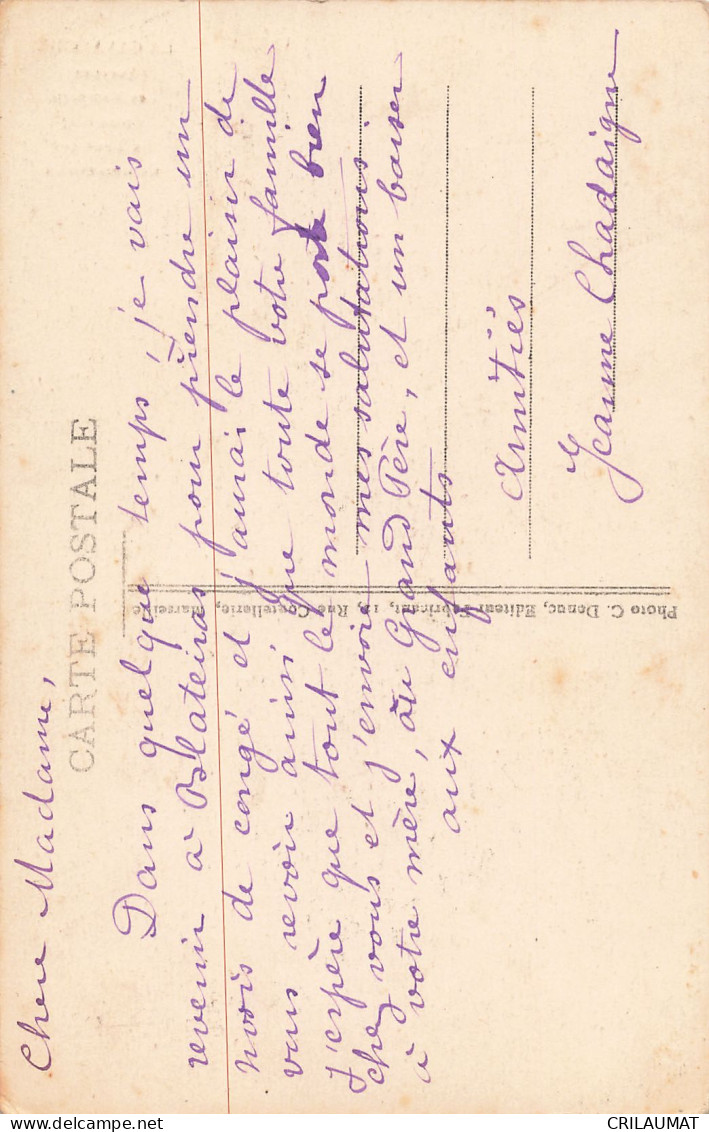 CARTE POSTALE
Chere Madame,
Dans quelque temps, je vais
revenir à Blateiras pour prendre un
mois de congé et j'aurai le plaisir de
vous revoir ainsi que toute votre famille
J'espère que tout le monde se porte bien
chez vous et j'envoie mes salutations
à votre mère, au Grand Père, et un baiser
aux enfants
Amitiés
Jeanne Chadaigne
Photo C. Donuc, Editeur-Fabricant, Rue Coutellerie, Marseille
CRILAUMAT